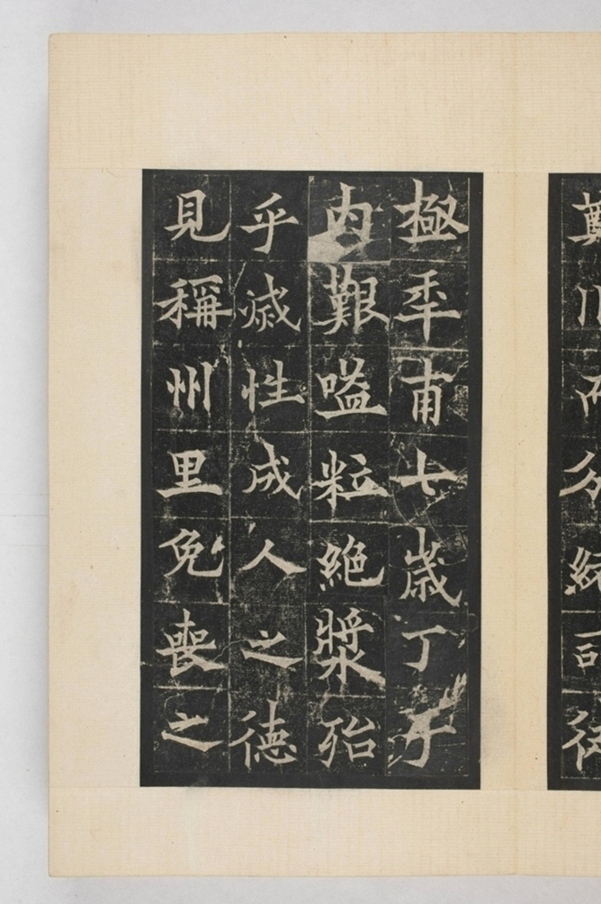 極年甫七歲丁于
内艱嗌粒絶漿殆
乎滅性成人之徳
見稱州里免喪之